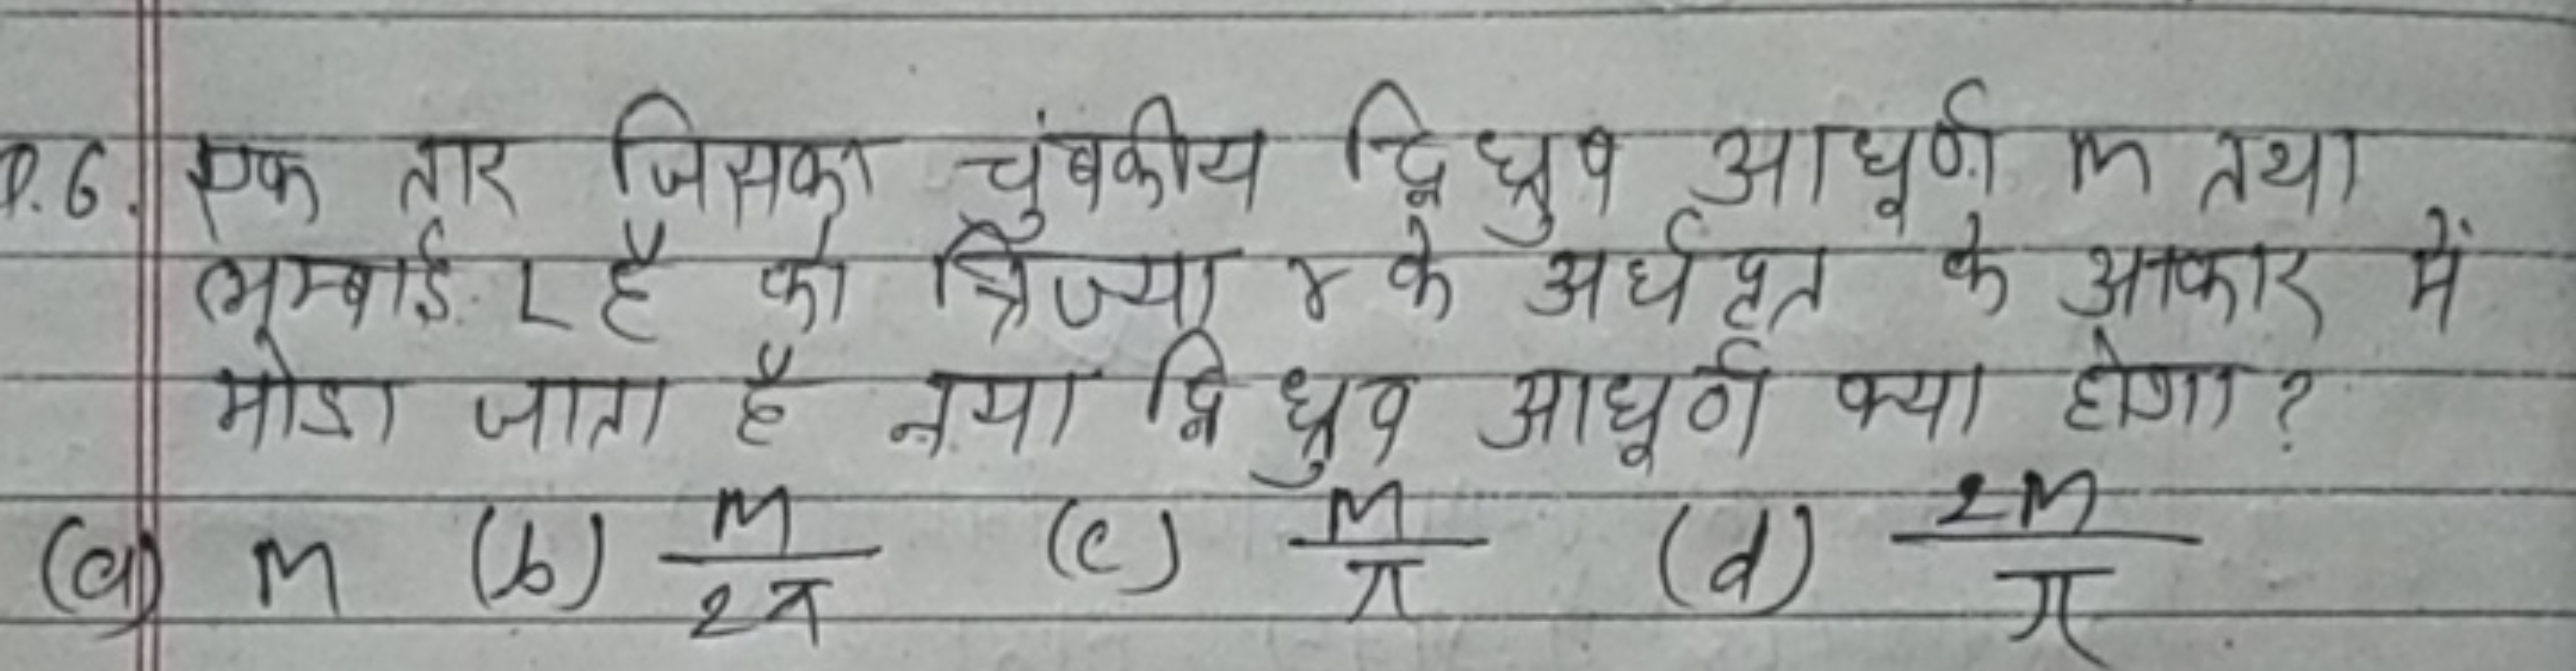 Q.6. एक तार जिसका चुंबकीय द्वि ध्रुव आघूर्ण m तथा
लम्बाई L है को त्रिज्या r के अर्धवृत के आकार में
मोडा जाता है नया द्वि ध्रुव आघूर्ण क्या होगा?
(a) M (b) M/2π (c) M/π (d) 2M/π